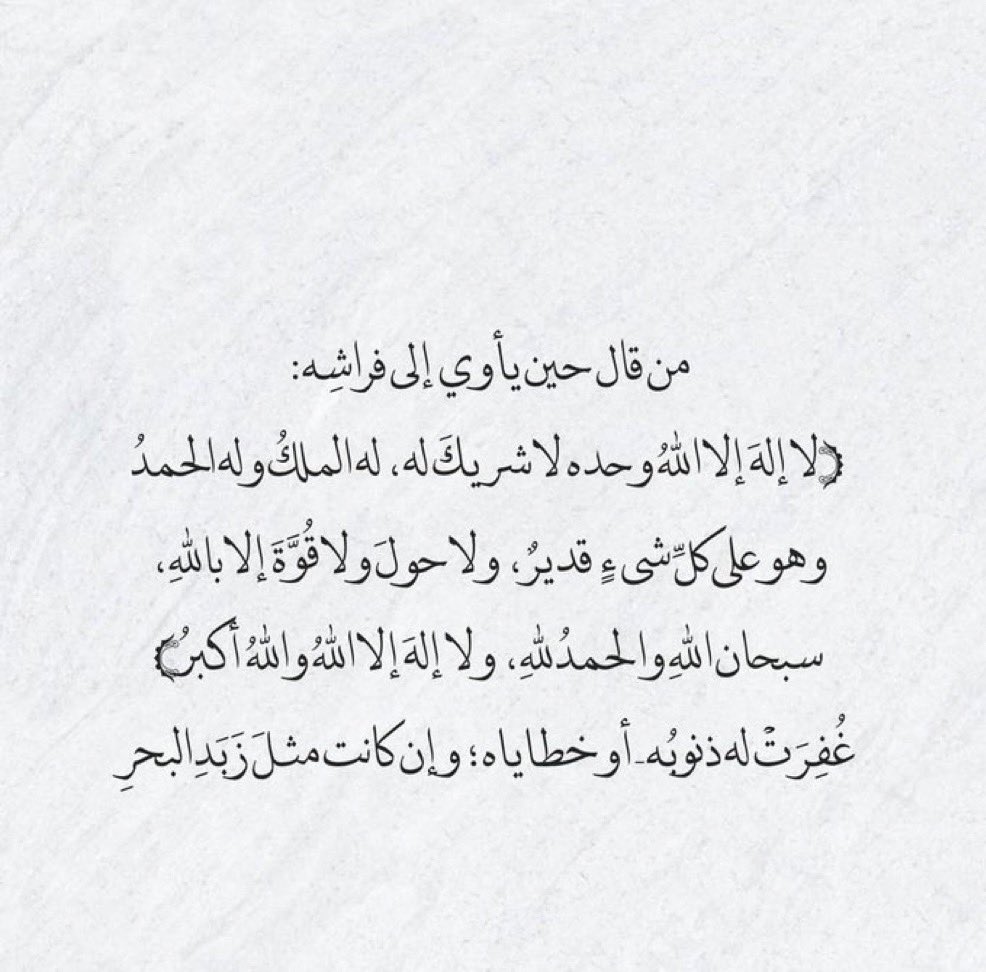 من قال حين يأوي إلى فراشِه:
﴿لا إلهَ إلا اللهُ وحده لا شريكَ له، له الملكُ وله الحمدُ
وهو على كلِّ شيءٍ قديرٌ، ولا حولَ ولا قُوَّةَ إلا باللهِ،
سبحان اللهِ والحمدُ للهِ، ولا إلهَ إلا اللهُ واللهُ أكبرُ﴾
غُفِرَتْ له ذنوبُه - أو خطاياه؛ وإن كانت مثلَ زَبَدِ البحرِ